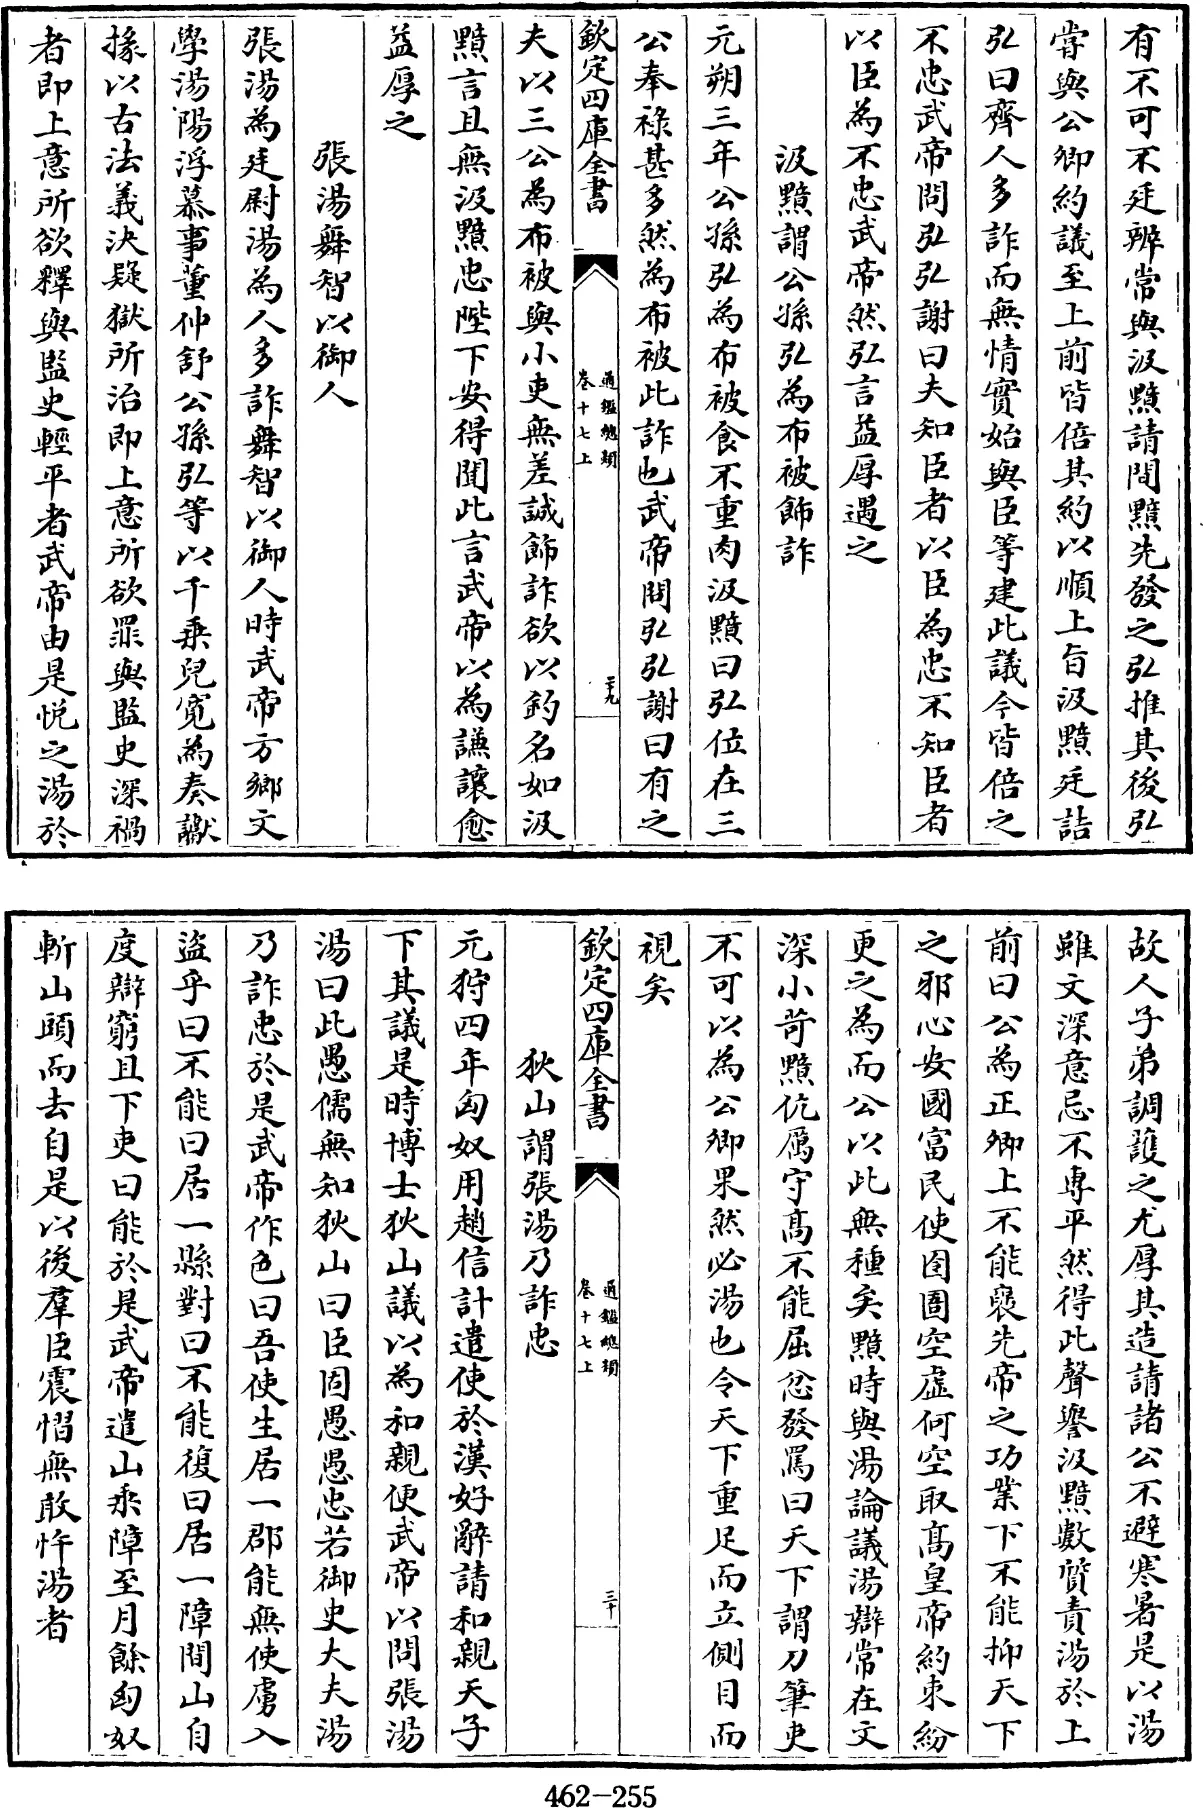 有不可不廷辨常與汲黯請間黯先發之弘推其後弘
嘗與公卿約議至上前皆倍其約以順上旨汲黯廷詰
弘曰齊人多詐而無情實始與臣等建此議今皆倍之
不忠武帝問弘弘謝曰夫知臣者以臣為忠不知臣者
以臣為不忠武帝然弘言益厚遇之
汲黯謂公孫弘為布被飾詐
元朔三年公孫弘為布被食不重肉汲黯曰弘位在三
公奉祿甚多然為布被此詐也武帝問弘弘謝曰有之
欽定四庫全書
通鑑總類
卷十七上
二十九
夫以三公為布被與小吏無差誠飾詐欲以釣名如汲
黯言且無汲黯忠陛下安得聞此言武帝以為謙讓愈
益厚之
張湯舞智以御人
張湯為廷尉湯為人多詐舞智以御人時武帝方鄉文
學湯陽浮慕事董仲舒公孫弘等以千乘兒寬為奏讞
掾以古法義決疑獄所治即上意所欲罪與監史深禍
者即上意所欲釋與監史輕平者武帝由是悅之湯於
故人子弟調護之尤厚其造請諸公不避寒暑是以湯
雖文深意忌不專平然得此聲譽汲黯數質責湯於上
前曰公為正卿上不能襃先帝之功業下不能抑天下
之邪心安國富民使囹圄空虛何空取髙皇帝約束紛
更之為而公以此無種矣黯時與湯論議湯辯常在文
深小苛黯伉厲守髙不能屈忿發罵曰天下謂刀筆吏
不可以為公卿果然必湯也令天下重足而立側目而
視矣
欽定四庫全書
通鑑總類
卷十七上
三十
狄山謂張湯乃詐忠
元狩四年匈奴用趙信計遣使於漢好辭請和親天子
下其議是時博士狄山議以為和親便武帝以問張湯
湯曰此愚儒無知狄山曰臣固愚愚忠若御史大夫湯
乃詐忠於是武帝作色曰吾使生居一郡能無使虜入
盜乎曰不能曰居一縣對曰不能復曰居一障間山自
度辯窮且下吏曰能於是武帝遣山乘障至月餘匈奴
斬山頭而去自是以後羣臣震慴無敢忤湯者
462-255